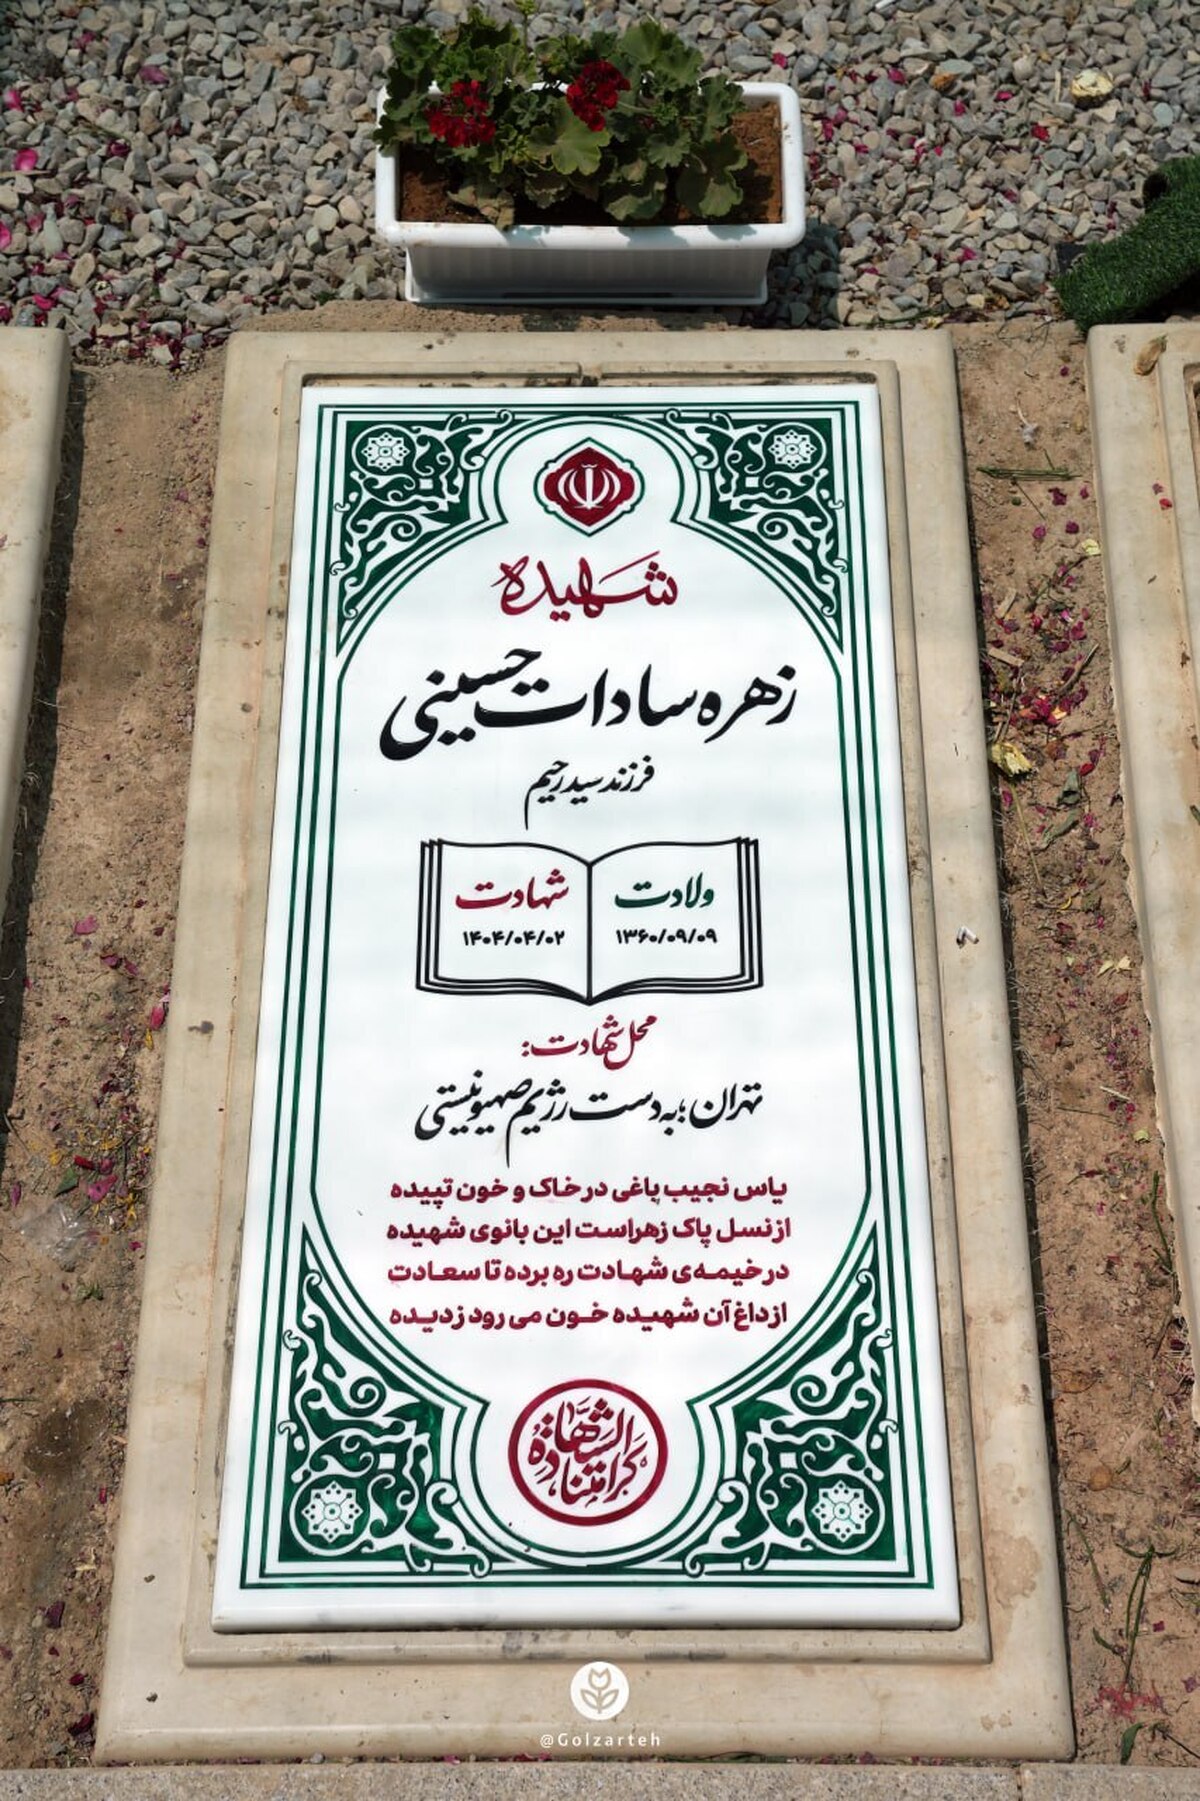 شهیده
زهره سادات حسینی
فرزند سید رحیم
ولادت
۱۳۶۰/۰۹/۰۹
شهادت
۱۴۰۴/۰۴/۰۲
محل شهادت:
تهران؛ به دست رژیم صهیونیستی
یاس نجیب باغی در خاک و خون تپیده
از نسل پاک زهراست این بانوی شهیده
در خیمه‌ی شهادت ره برده تا سعادت
از داغ آن شهیده خون می رود ز دیده
كَرامَتُنا
الشَّهادَةُ
@Golzarteh